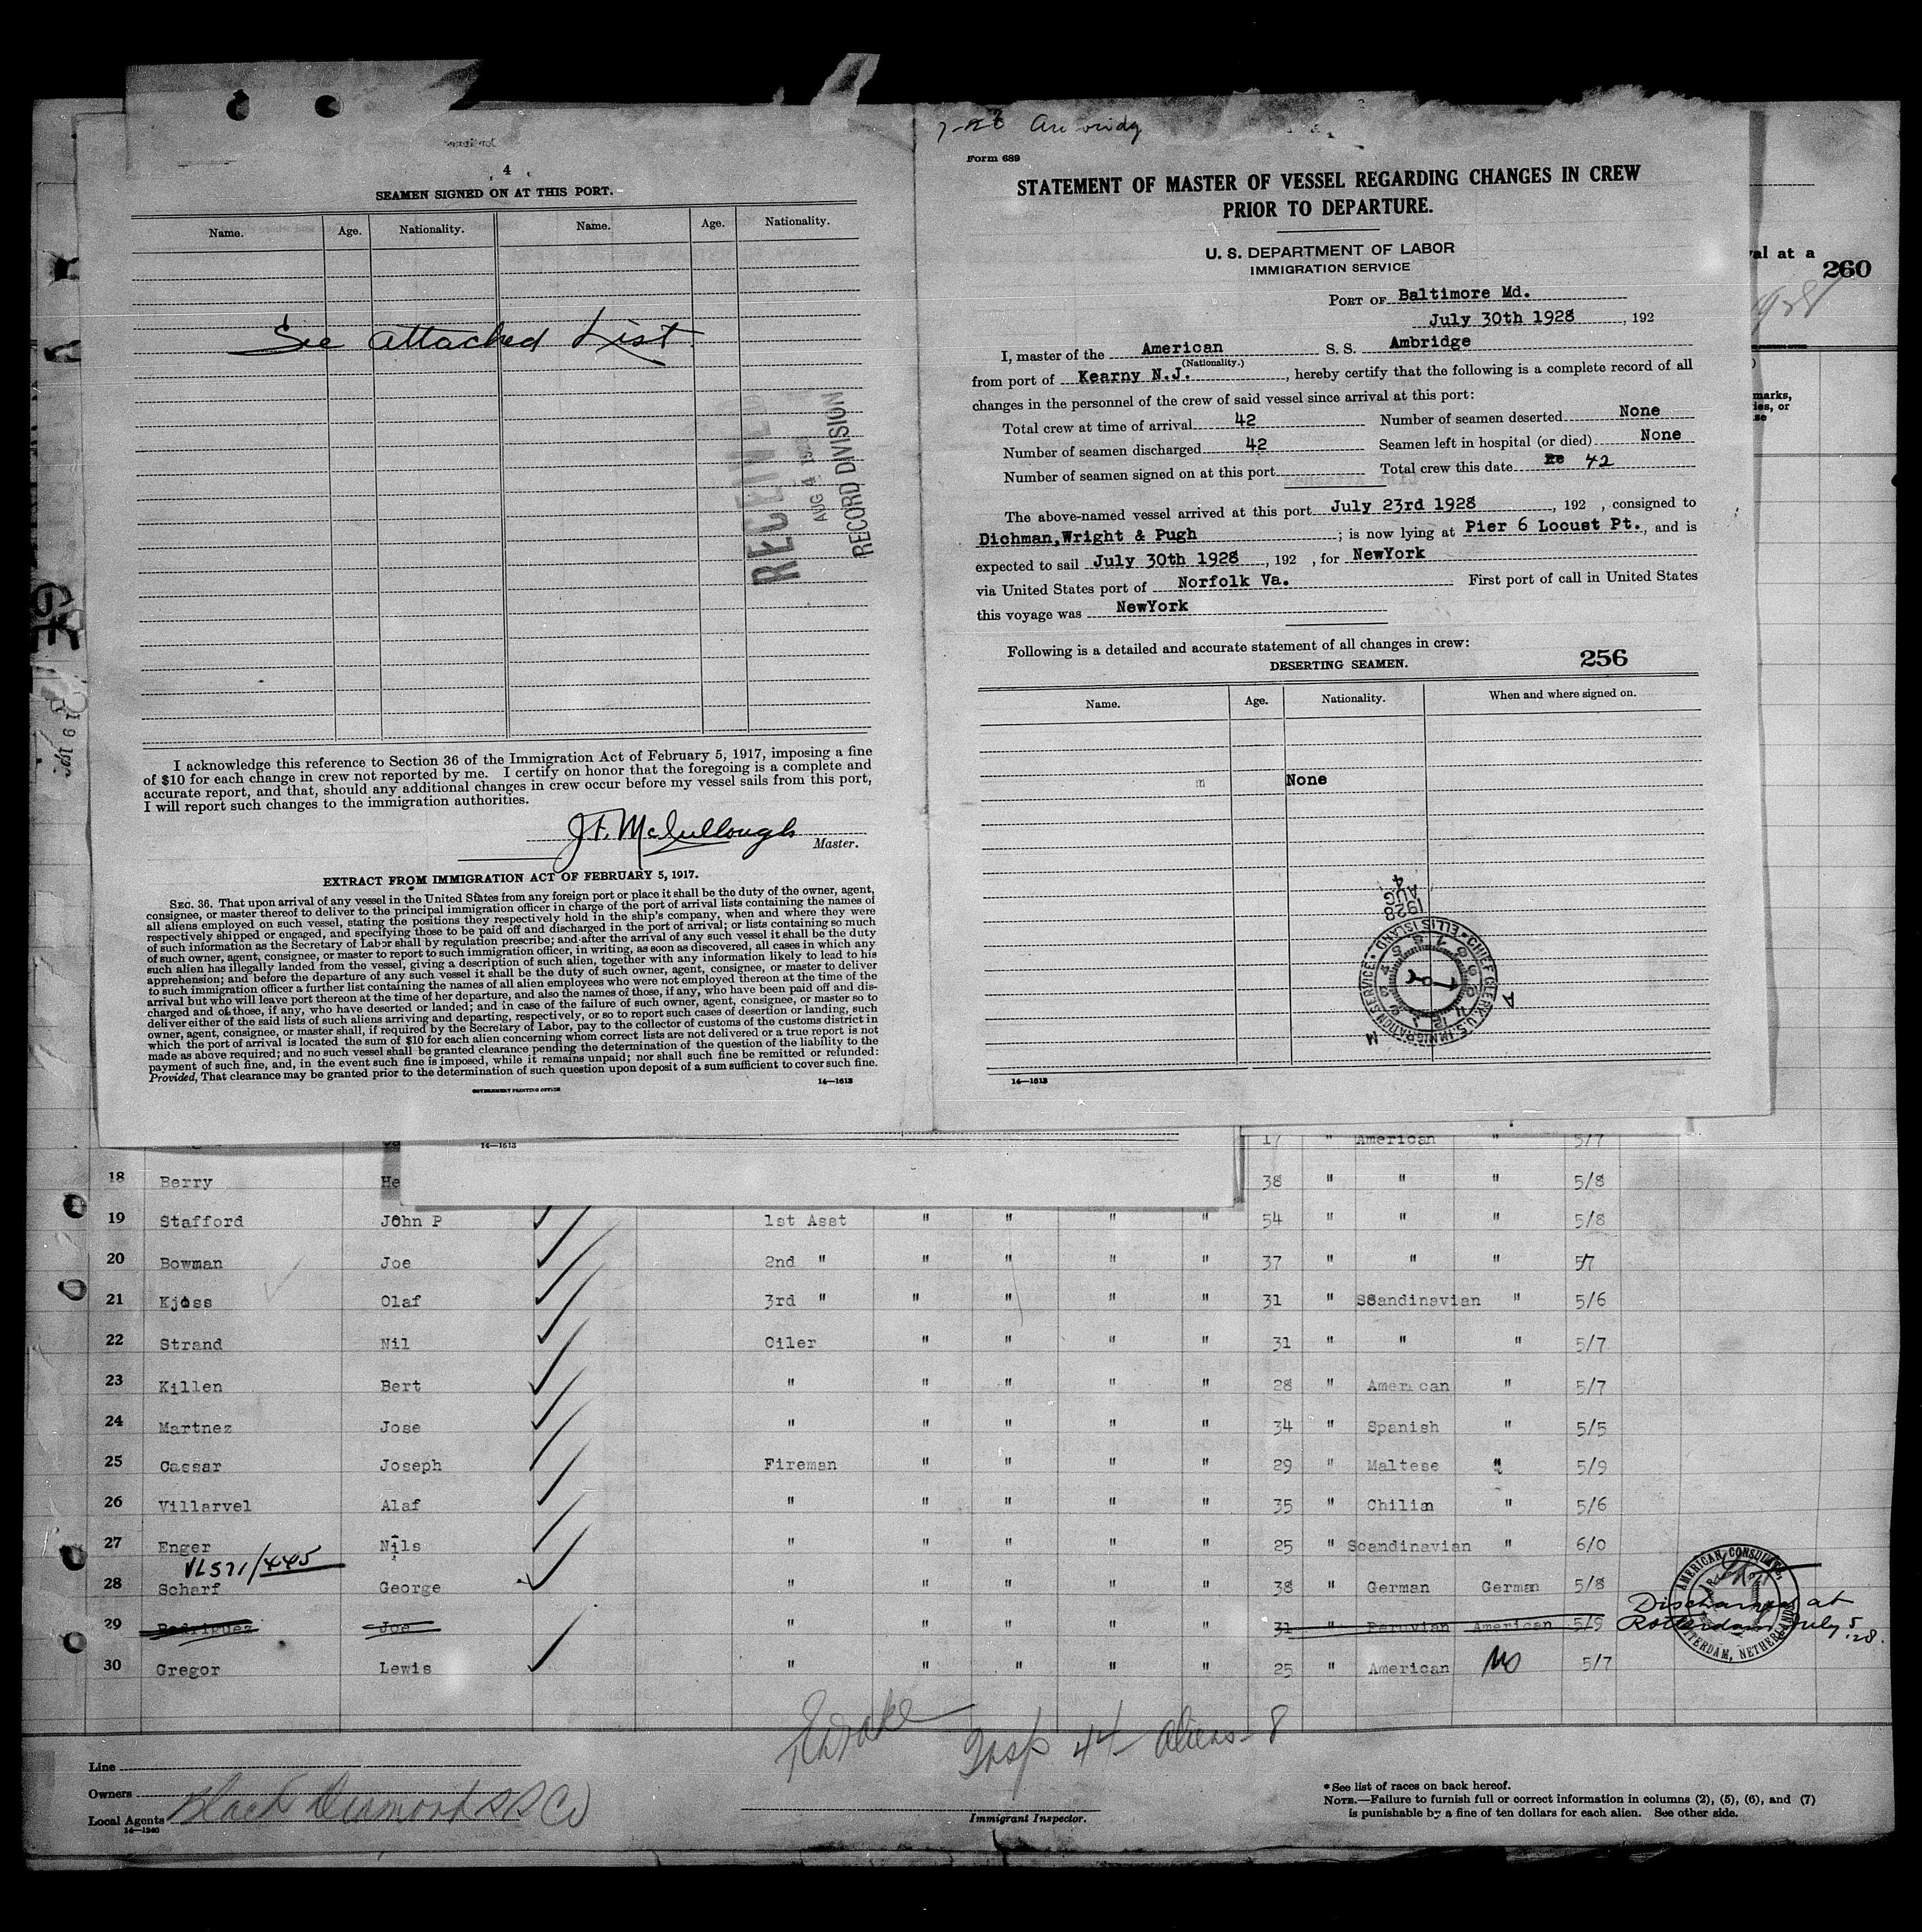 4
SEAMEN SIGNED ON AT THIS PORT.
Name. Age. Nationality. Name. Age. Nationality.
See attached List
RECEIVED
AUG 4 1928
RECORD DIVISION
I acknowledge this reference to Section 36 of the Immigration Act of February 5, 1917, imposing a fine
of $10 for each change in crew not reported by me. I certify on honor that the foregoing is a complete and
accurate report, and that, should any additional changes in crew occur before my vessel sails from this port,
I will report such changes to the immigration authorities.
J.F. McCullough
Master.
EXTRACT FROM IMMIGRATION ACT OF FEBRUARY 5, 1917.
SEC. 36. That upon arrival of any vessel in the United States from any foreign port or place it shall be the duty of the owner, agent,
consignee, or master thereof to deliver to the principal immigration officer in charge of the port of arrival lists containing the names of
all aliens employed on such vessel, stating the positions they respectively hold in the ship's company, when and where they were
respectively shipped or engaged, and specifying those to be paid off and discharged in the port of arrival; or lists containing so much
of such information as the Secretary of Labor shall by regulation prescribe; and after the arrival of any such vessel it shall be the duty
of such owner, agent, consignee, or master to report to such immigration officer, in writing, as soon as discovered, all cases in which any
such alien has illegally landed from the vessel, giving a description of such alien, together with any information likely to lead to his
apprehension; and before the departure of any such vessel it shall be the duty of such owner, agent, consignee, or master to deliver
to such immigration officer a further list containing the names of all alien employees who were not employed thereon at the time of the
arrival but who will leave port thereon at the time of her departure, and also the names of those, if any, who have been paid off and dis-
charged and of those, if any, who have deserted or landed; and in case of the failure of such owner, agent, consignee, or master so to
deliver either of the said lists of such aliens arriving and departing, respectively, or so to report such cases of desertion or landing, such
owner, agent, consignee, or master shall, if required by the Secretary of Labor, pay to the collector of customs of the customs district in
which the port of arrival is located the sum of $10 for each alien concerning whom correct lists are not delivered or a true report is not
made as above required; and no such vessel shall be granted clearance pending the determination of the question of the liability to the
payment of such fine, and, in the event such fine is imposed, while it remains unpaid; nor shall such fine be remitted or refunded:
Provided, That clearance may be granted prior to the determination of such question upon deposit of a sum sufficient to cover such fine.
GOVERNMENT PRINTING OFFICE 14—1613
Form 689
STATEMENT OF MASTER OF VESSEL REGARDING CHANGES IN CREW
PRIOR TO DEPARTURE.
U. S. DEPARTMENT OF LABOR
IMMIGRATION SERVICE
PORT OF Baltimore Md.
July 30th 1928, 192
I, master of the American S. S. Ambridge
(Nationality.)
from port of Kearny N.J., hereby certify that the following is a complete record of all
changes in the personnel of the crew of said vessel since arrival at this port:
Total crew at time of arrival 42 Number of seamen deserted None
Number of seamen discharged 42 Seamen left in hospital (or died) None
Number of seamen signed on at this port Total crew this date 42
The above-named vessel arrived at this port July 23rd 1928, 192 , consigned to
Dichman,Wright & Pugh ; is now lying at Pier 6 Locust Pt., and is
expected to sail July 30th 1928, 192 , for NewYork
via United States port of Norfolk Va. First port of call in United States
this voyage was NewYork
Following is a detailed and accurate statement of all changes in crew:
DESERTING SEAMEN. 256
Name. Age. Nationality. When and where signed on.
None
1928
AUG
4
CHIEF CLERK, U.S. IMMIGRATION SERVICE • ELLIS ISLAND •
A M
14—1613
val at a
260
1928
marks,
ies, or
se
14—1613
17 " American " 5/7
18 Berry He 38 " " " 5/8
19 Stafford John P 1st Asst " " " " 54 " " " 5/8
20 Bowman Joe 2nd " " " " " 37 " " " 5/7
21 Kjoss Olaf 3rd " " " " " 31 " Scandinavian " 5/6
22 Strand Nil Oiler " " " " 31 " " " 5/7
23 Killen Bert " " " " " 28 " American " 5/7
24 Martnez Jose " " " " " 34 " Spanish " 5/5
25 Cassar Joseph Fireman " " " " 29 " Maltese " 5/9
26 Villarvel Alaf " " " " " 35 " Chilian " 5/6
27 Enger Nils " " " " " 25 " Scandinavian " 6/0
VL571/445
28 Scharf George " " " " " 38 " German German 5/8
29 Rodriguez Joe " " " " " 31 " Peruvian American 5/9 Discharged at
Rotterdam July 5 .28.
AMERICAN CONSULATE, ROTTERDAM, NETHERLANDS
30 Gregor Lewis " " " " " 25 " American No 5/7
Insp 44 Aliens - 8
Line
Owners
Local Agents Black Diamond S S Co
14—1240
Immigrant Inspector.
* See list of races on back hereof.
NOTE.—Failure to furnish full or correct information in columns (2), (5), (6), and (7)
is punishable by a fine of ten dollars for each alien. See other side.